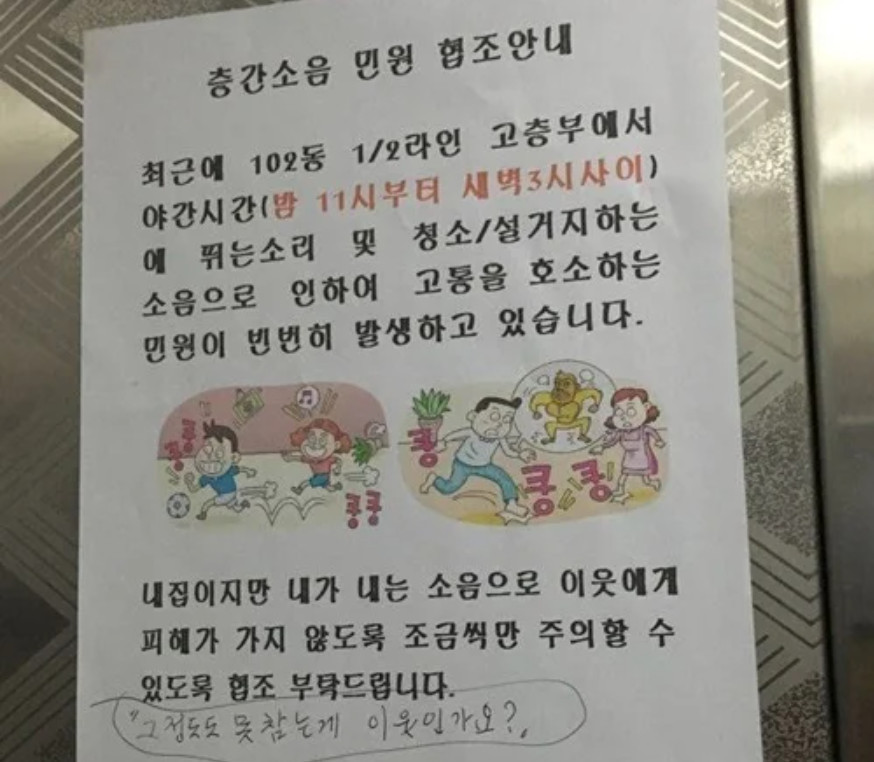 층간소음 민원 협조안내
최근에 102동 1/2라인 고층부에서
야간시간(밤 11시부터 새벽3시사이)
에 뛰는소리 및 청소/설거지하는
소음으로 인하여 고통을 호소하는
민원이 빈번히 발생하고 있습니다.
쿵쿵
쿵쿵
쿵
쿵 쿵
내집이지만 내가 내는 소음으로 이웃에게
피해가 가지 않도록 조금씩만 주의할 수
있도록 협조 부탁드립니다.
"그정도도 못참는게 이웃인가요?"